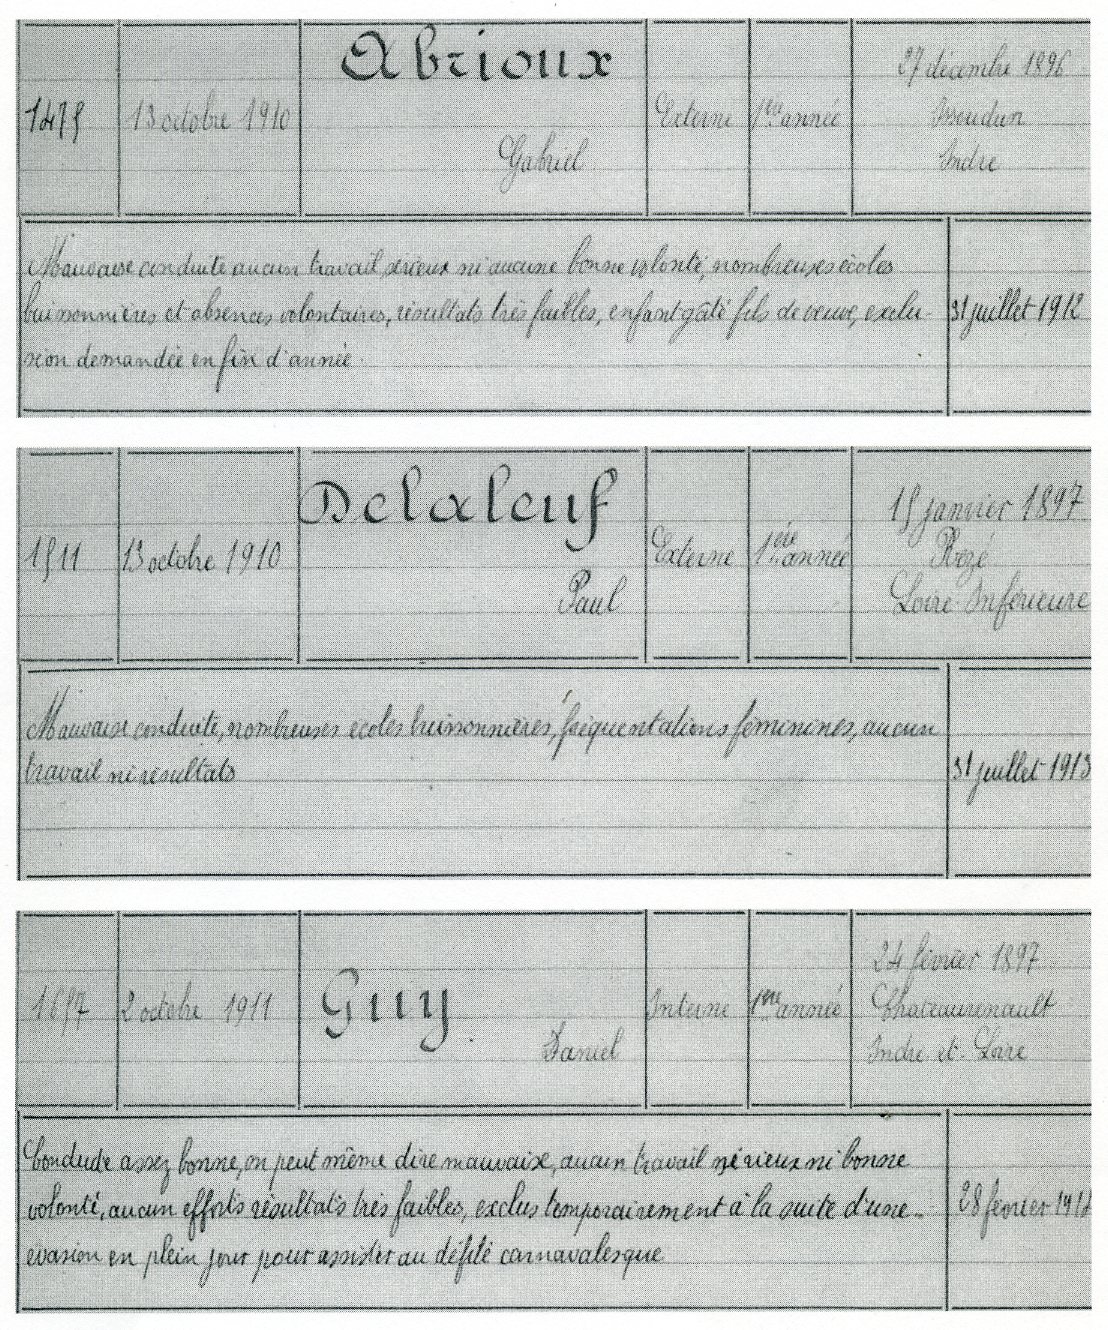 Abrioux
1475
13 octobre 1910
Gabriel
Externe
1ère année
27 décembre 1896
Issoudun
Indre
Mauvaise conduite aucun travail sérieux ni aucune bonne volonté, nombreuses écoles
buissonnières et absences volontaires, résultats très faibles, enfant gâté fils de veuve, exclu-
sion demandée en fin d'année.
31 juillet 1912
Delaleuf
1511
13 octobre 1910
Paul
Externe
1ère année
15 janvier 1897
Rezé
Loire Inférieure
Mauvaise conduite, nombreuses écoles buissonnières, fréquentations féminines, aucun
travail ni résultats
31 juillet 1913
Guy
1657
2 octobre 1911
Daniel
Interne
1ère année
24 février 1897
Chateaurenault
Indre et Loire
Conduite assez bonne, on peut même dire mauvaise, aucun travail sérieux ni bonne
volonté, aucun efforts résultats très faibles, exclus temporairement à la suite d'une
évasion en plein jour pour assister au défilé carnavalesque
28 février 1912